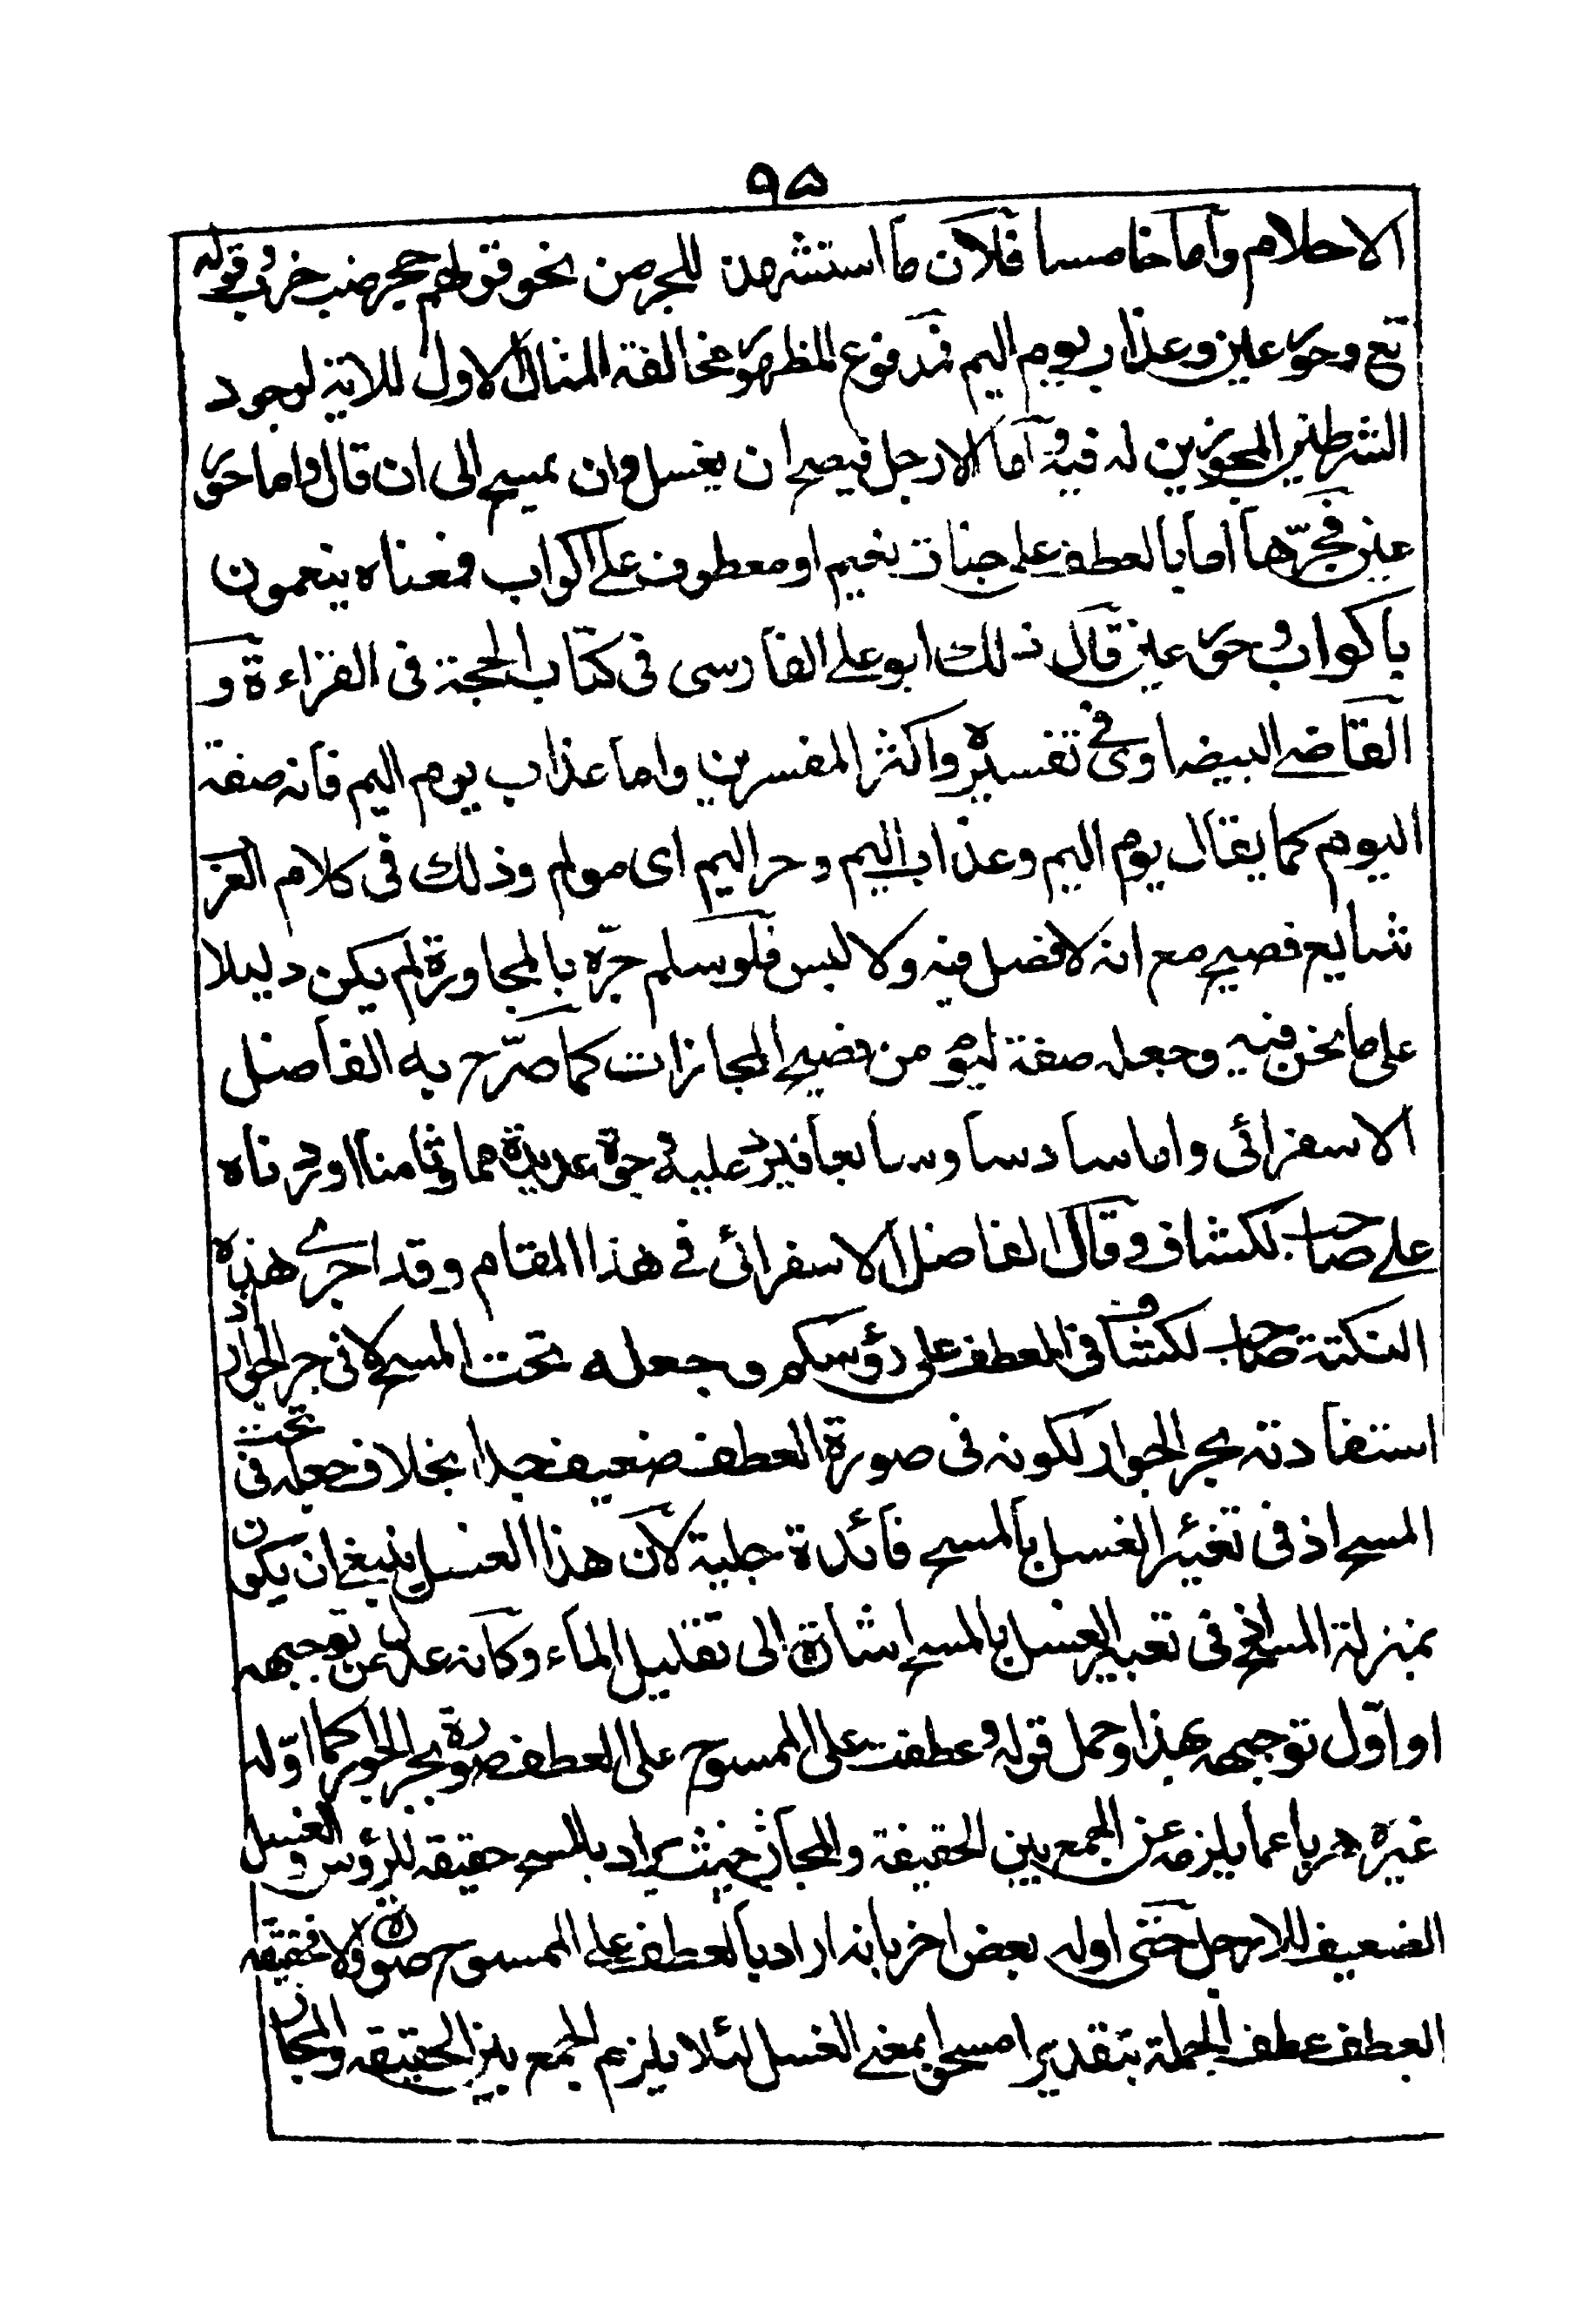 ٩۵
الاحلام واما خامسا فلان ما استشهدن للجر من نحو قولهم حجر ضب خرب وقوله
تع وحور عين وعذاب يوم اليم فمدفوع لظهور مخالفة المثال الاول للاية لوجود
الشرطين المجوزين له فيه واما الارجل فيصح ان يغسل وان يمسح الى ان قال واما حور
عين فجرها اما بالعطف على جنات نعيم او معطوف على اكواب فمعناه ينعمون
باكواب وحور عين قال ذلك ابو على الفارسى فى كتاب الحجة فى القراءة و
القاضى البيضاوى فى تفسيره واكثر المفسرين واما عذاب يوم اليم فانه صفة
اليوم كما يقال يوم اليم وعذاب اليم وحر اليم اى مولم وذلك فى كلام العز
شايع فصيح مع انه لا فصل فيه ولا لبس فلو سلم جره بالمجاورة لم يكن دليلا
على ما نحن فيه وجعله صفة ليوم من فصيح المجازات كما صرّح به الفاضل
الاسفرائى واما سادسا وسابعا وثامنا فيرد عليه وجوه عديدة مما اوردناه
على صاحب لكشاف وقال الفاضل الاسفرائى فى هذا المقام وقد اجرى هذه
النكتة صاحب لكشاف فى العطف على رؤسكم وجعله تحت المسح لا فى جر الجوار اذ
استفادته بجر الجوار لكونه فى صورة العطف ضعيف جدا بخلاف جعله فى تحت
المسح اذ فى تغيير الغسل بالمسح فائدة جلية لان هذا الغسل ينبغى ان يكون
بمنزلة المسح ففى تعبير الغسل بالمسح اشارة الى تقليل الماء وكانه عدل من توجيهه
او اوّل توجيهه بهذا وحمل قوله وعطفت على الممسوح على العطف صورة بجر الجوار كما اوّله
غيره هربا عما يلزمه من الجمع بين الحقيقة والمجاز حيث يراد بالمسح حقيقة للرؤس والغسل
الضعيف للارجل حتى اوله بعض اخر بانه اراد بالعطف على الممسوح صورة والا فحقيقة
العطف عطف الجملة بتقدير امسحوا بمعنى الغسل لئلا يلزم الجمع بين الحقيقه والمجاز